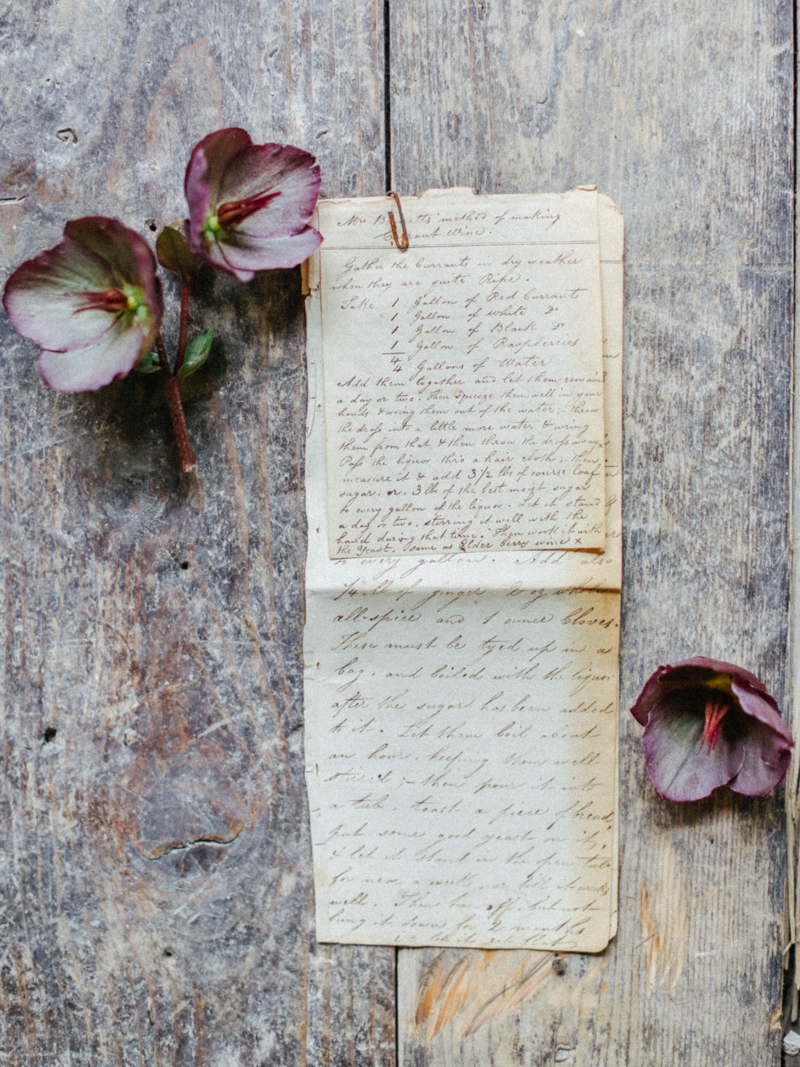 Mrs method of making
Currant Wine.
Gather the Currants in dry weather
when they are quite Ripe.
Take 1 Gallon of Red Currants
1 Gallon of White Do
1 Gallon of Black Do
1 Gallon of Raspberries
4
4 Gallons of Water
Add them together and let them remain
a day or two. Then squeeze them well in your
hands & wring them out of the water; throw
the dross into a little more water & wring
them from that & then throw the dross away.
Pass the liquor thro a hair cloth; then
measure it & add 3 1/2 lbs of course loaf
sugar, or, 3 lbs of the best moist sugar
to every gallon of the liquor. Let it stand
a day or two, sterring it well with the
hand during that time. Then work it with
the Yeast, same as Elder berry wine x
to every gallon. Add also
of ginger
all-spice and 1 ounce Cloves.
These must be tyed up in a
bag, and boiled with the liquor
after the sugar has been added
to it. Let them boil about
an hour, keeping them well
then pour it into
a tub, toast a piece of bread,
put some good yeast on it,
& let it stand in the open tub
for a week, or till it
well. Then but not
bung it down for 2 months